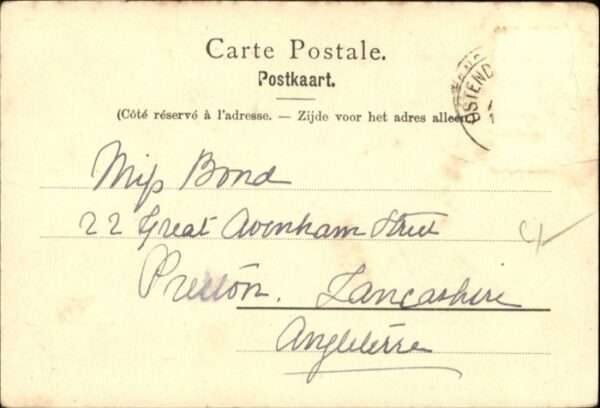 Carte Postale.
Postkaart.
(Côté réservé à l'adresse. — Zijde voor het adres alleen
OSTEND
Miss Bond
22 Great Avenham Street
Preston. Lancashire
Angleterre